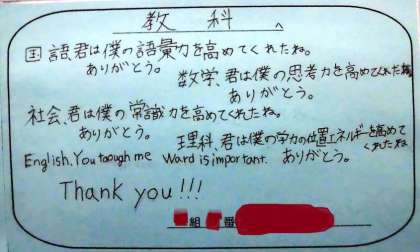 教科へ
国語君は僕の語彙力を高めてくれたね。
ありがとう。
数学、君は僕の思考力を高めてくれたね
ありがとう。
社会、君は僕の常識力を高めてくれたね。
ありがとう。
理科、君は僕の学力の位置エネルギーを高めて
くれたね
ありがとう。
English. You taough me Ward is important.
Thank you!!!
組 番